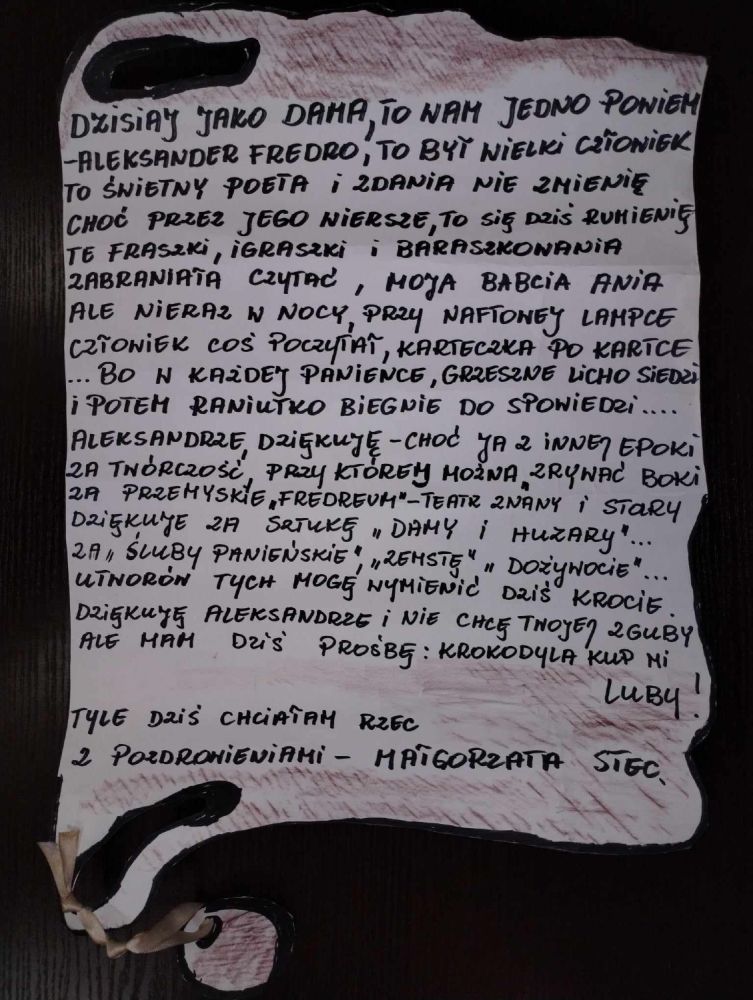 DZISIAJ JAKO DAMA, TO WAM JEDNO POWIEM
-ALEKSANDER FREDRO, TO BYŁ WIELKI CZŁOWIEK
TO ŚWIETNY POETA I ZDANIA NIE ZMIENIĘ
CHOĆ PRZEZ JEGO WIERSZE, TO SIĘ DZIŚ RUMIENIĘ
TE FRASZKI, IGRASZKI I BARASZKOWANIA
ZABRANIAŁA CZYTAĆ, MOJA BABCIA ANIA
ALE NIERAZ W NOCY, PRZY NAFTOWEJ LAMPCE
CZŁOWIEK COŚ POCZYTAŁ, KARTECZKA PO KARTCE
... BO W KAŻDEJ PANIENCE, GRZESZNE LICHO SIEDZI
I POTEM RANIUTKO BIEGNIE DO SPOWIEDZI....
ALEKSANDRZE, DZIĘKUJĘ - CHOĆ JA Z INNEJ EPOKI
ZA TWÓRCZOŚĆ, PRZY KTÓREJ MOŻNA, ZRYWAĆ BOKI
ZA PRZEMYSKIE „FREDREUM" - TEATR ZNANY I STARY
DZIĘKUJE ZA SZTUKĘ „DAMY I HUZARY"...
ZA „ŚLUBY PANIEŃSKIE", „ZEMSTĘ" „DOŻYWOCIE"...
UTWORÓW TYCH MOGĘ WYMIENIĆ DZIŚ KROCIE.
DZIĘKUJĘ ALEKSANDRZE I NIE CHCĘ TWOJEJ ZGUBY
ALE MAM DZIŚ PROŚBĘ: KROKODYLA KUP MI
LUBY!
TYLE DZIŚ CHCIAŁAM RZEC
Z POZDROWIENIAMI - MAŁGORZATA STEC.